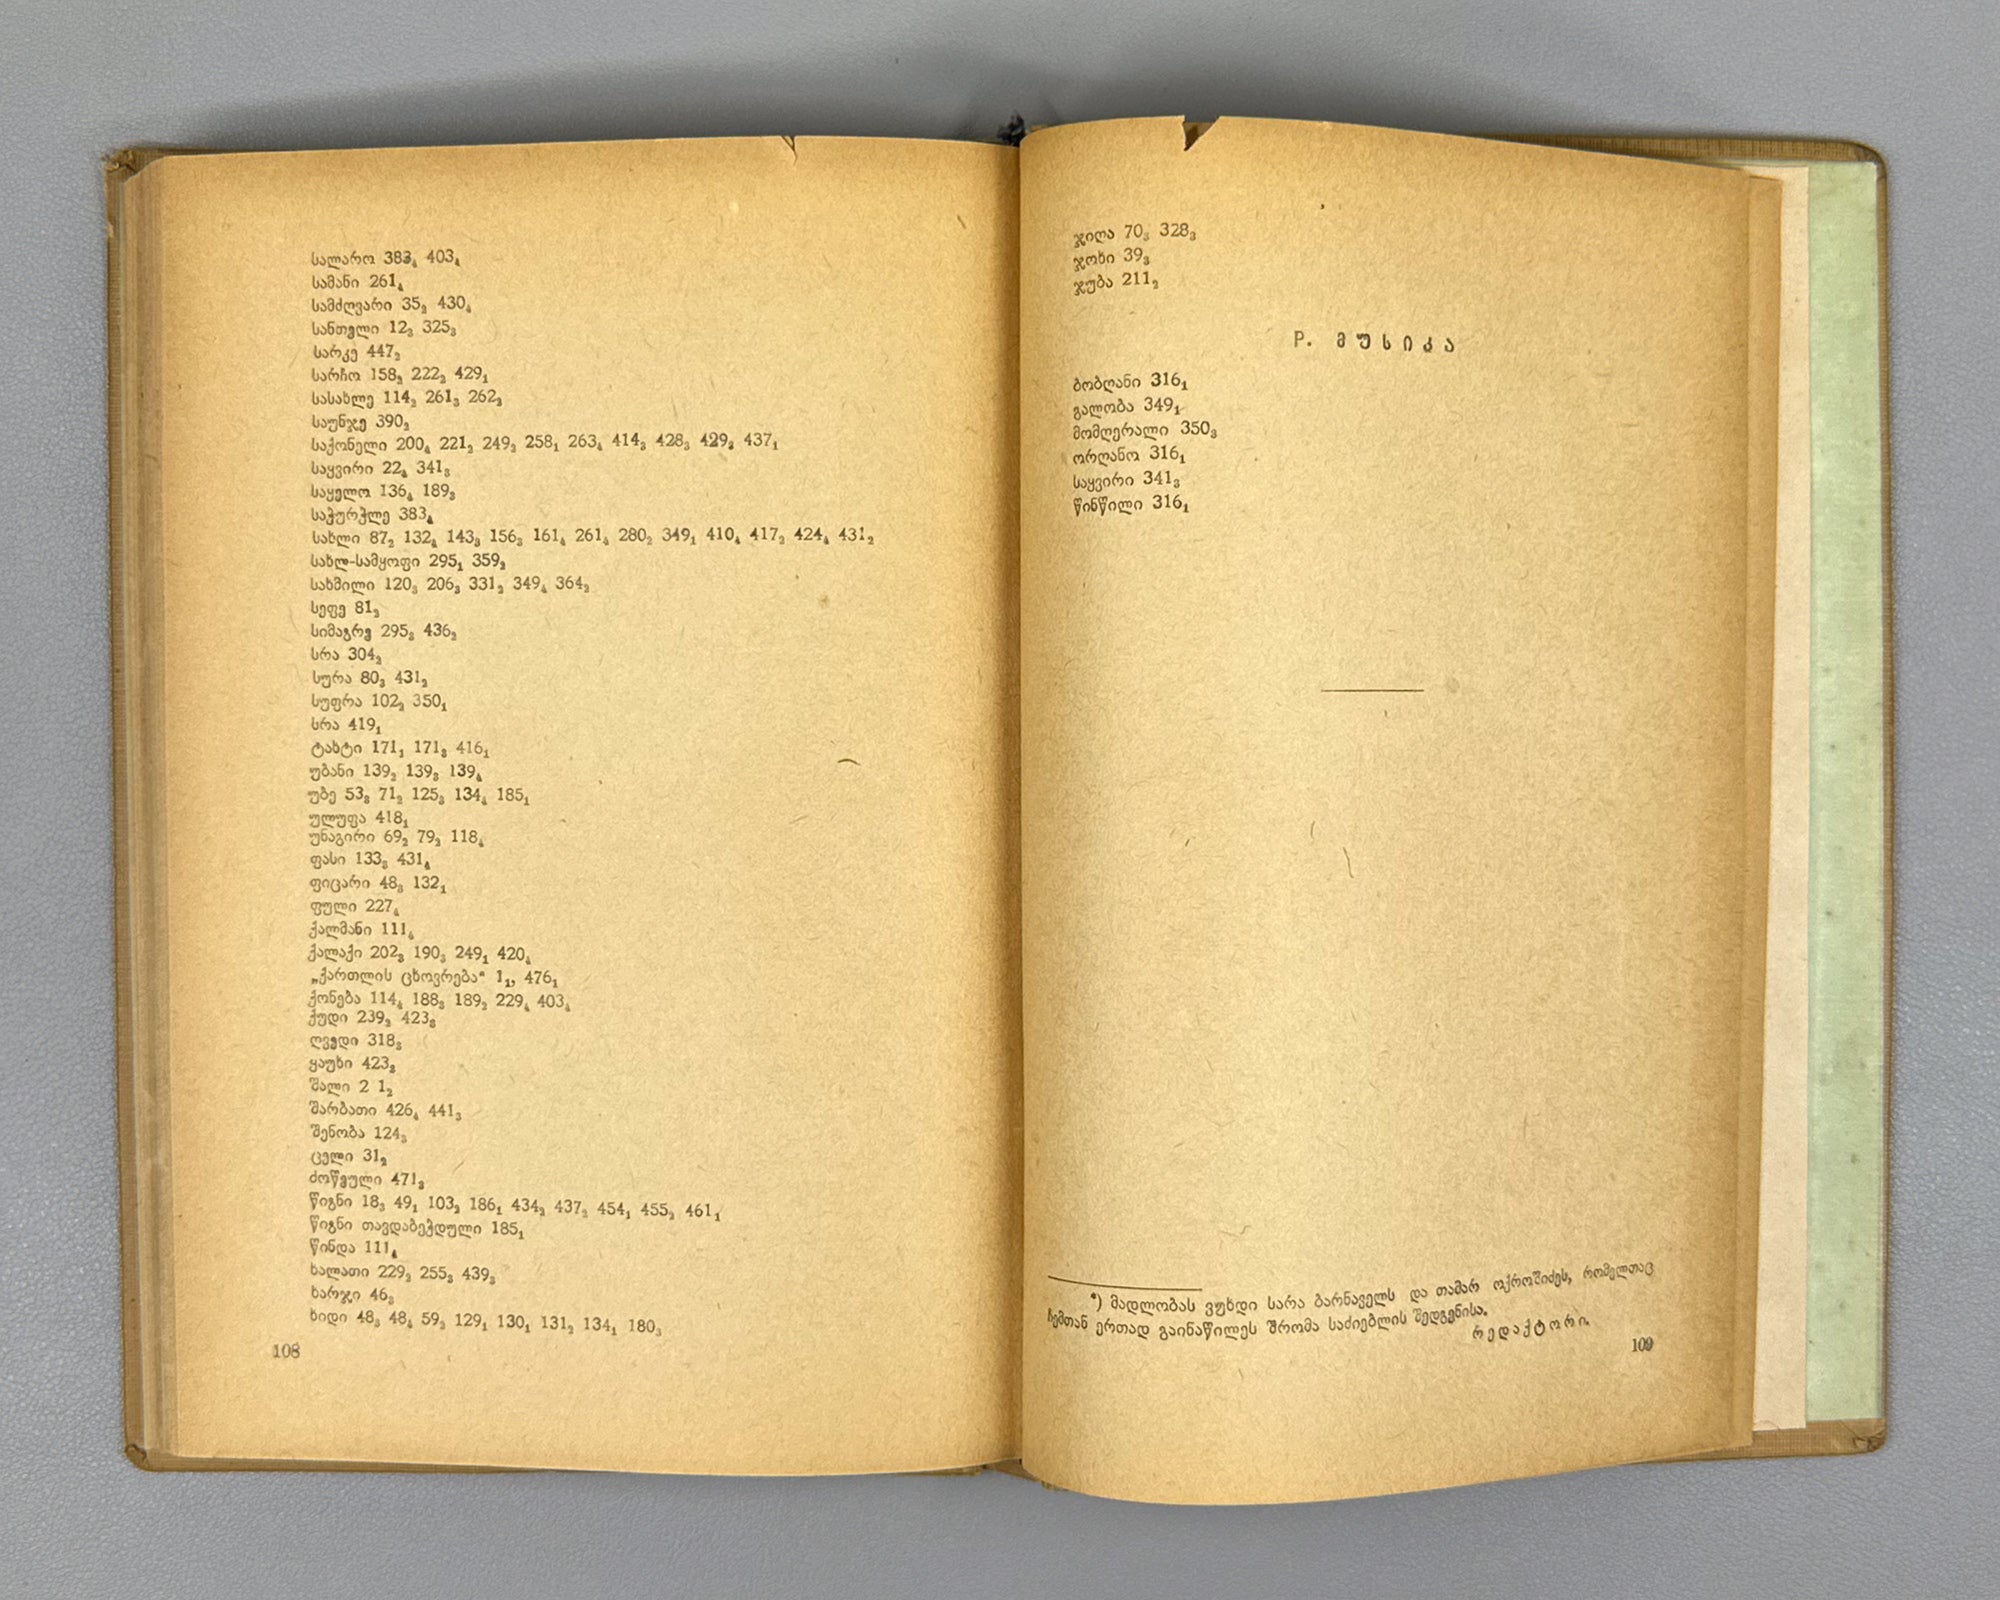 სალარო 383₄ 403₄
სამანი 261₄
სამძღვარი 35₂ 430₄
სანთელი 12₃ 325₃
სარკე 447₂
სარჩო 158₂ 222₂ 429₁
სასახლე 114₂ 261₃ 262₃
საუნჯე 390₂
საქონელი 200₄ 221₂ 249₂ 258₁ 263₄ 414₃ 428₃ 429₂ 437₁
საყვირი 22₄ 341₃
საყელო 136₄ 189₃
საჭურჭლე 383₄
სახლი 87₂ 132₄ 143₃ 156₃ 161₄ 261₄ 280₂ 349₁ 410₄ 417₂ 424₄ 431₂
სახლ-სამყოფი 295₁ 359₂
სახმილი 120₃ 206₃ 331₂ 349₄ 364₂
სეფე 81₃
სიმაგრე 295₃ 436₂
სრა 304₂
სურა 80₃ 431₂
სუფრა 102₂ 350₁
სრა 419₁
ტახტი 171₁ 171₃ 416₁
უბანი 139₂ 139₃ 139₄
უბე 53₃ 71₂ 125₃ 134₄ 185₁
ულუფა 418₁
უნაგირი 69₂ 79₂ 118₄
ფასი 133₃ 431₄
ფიცარი 48₃ 132₁
ფული 227₄
ქალმანი 111₄
ქალაქი 202₃ 190₃ 249₁ 420₄
„ქართლის ცხოვრება“ 1₁, 476₁
ქონება 114₄ 188₃ 189₂ 229₄ 403₄
ქუდი 239₂ 423₃
ღვედი 318₃
ყაუხი 423₃
შალი 2 1₂
შარბათი 426₄ 441₃
შენობა 124₃
ცელი 31₂
ძოწეული 471₃
წიგნი 18₃ 49₁ 103₂ 186₁ 434₂ 437₂ 454₁ 455₂ 461₁
წიგნი თავდაბეჭდული 185₁
წინდა 111₄
ხალათი 229₂ 255₃ 439₃
ხარჯი 46₃
ხიდი 48₃ 48₄ 59₃ 129₁ 130₁ 131₂ 134₁ 180₃
108
ჯიღა 70₃ 328₃
ჯოხი 39₃
ჯუბა 211₂
P. მუსიკა
ბობღანი 316₁
გალობა 349₁
მომღერალი 350₃
ორღანო 316₁
საყვირი 341₃
წინწილი 316₁
*) მადლობას ვუხდი სარა ბარნაველს და თამარ ოქროშიძეს, რომელთაც
ჩემთან ერთად გაინაწილეს შრომა საძიებლის შედგენისა.
რედაქტორი.
109